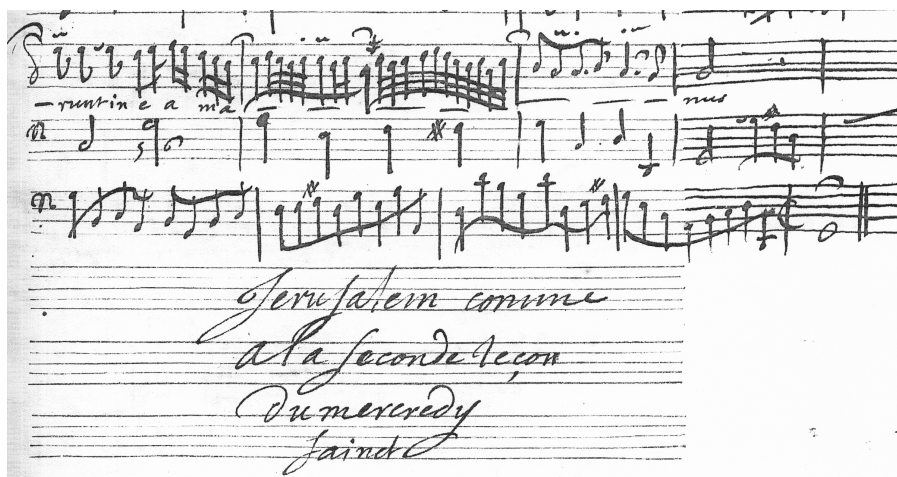 -runt in e a ma - - - - - - - nus
5 6
Jerusalem comme
a la seconde leçon
du mercredy
sainct